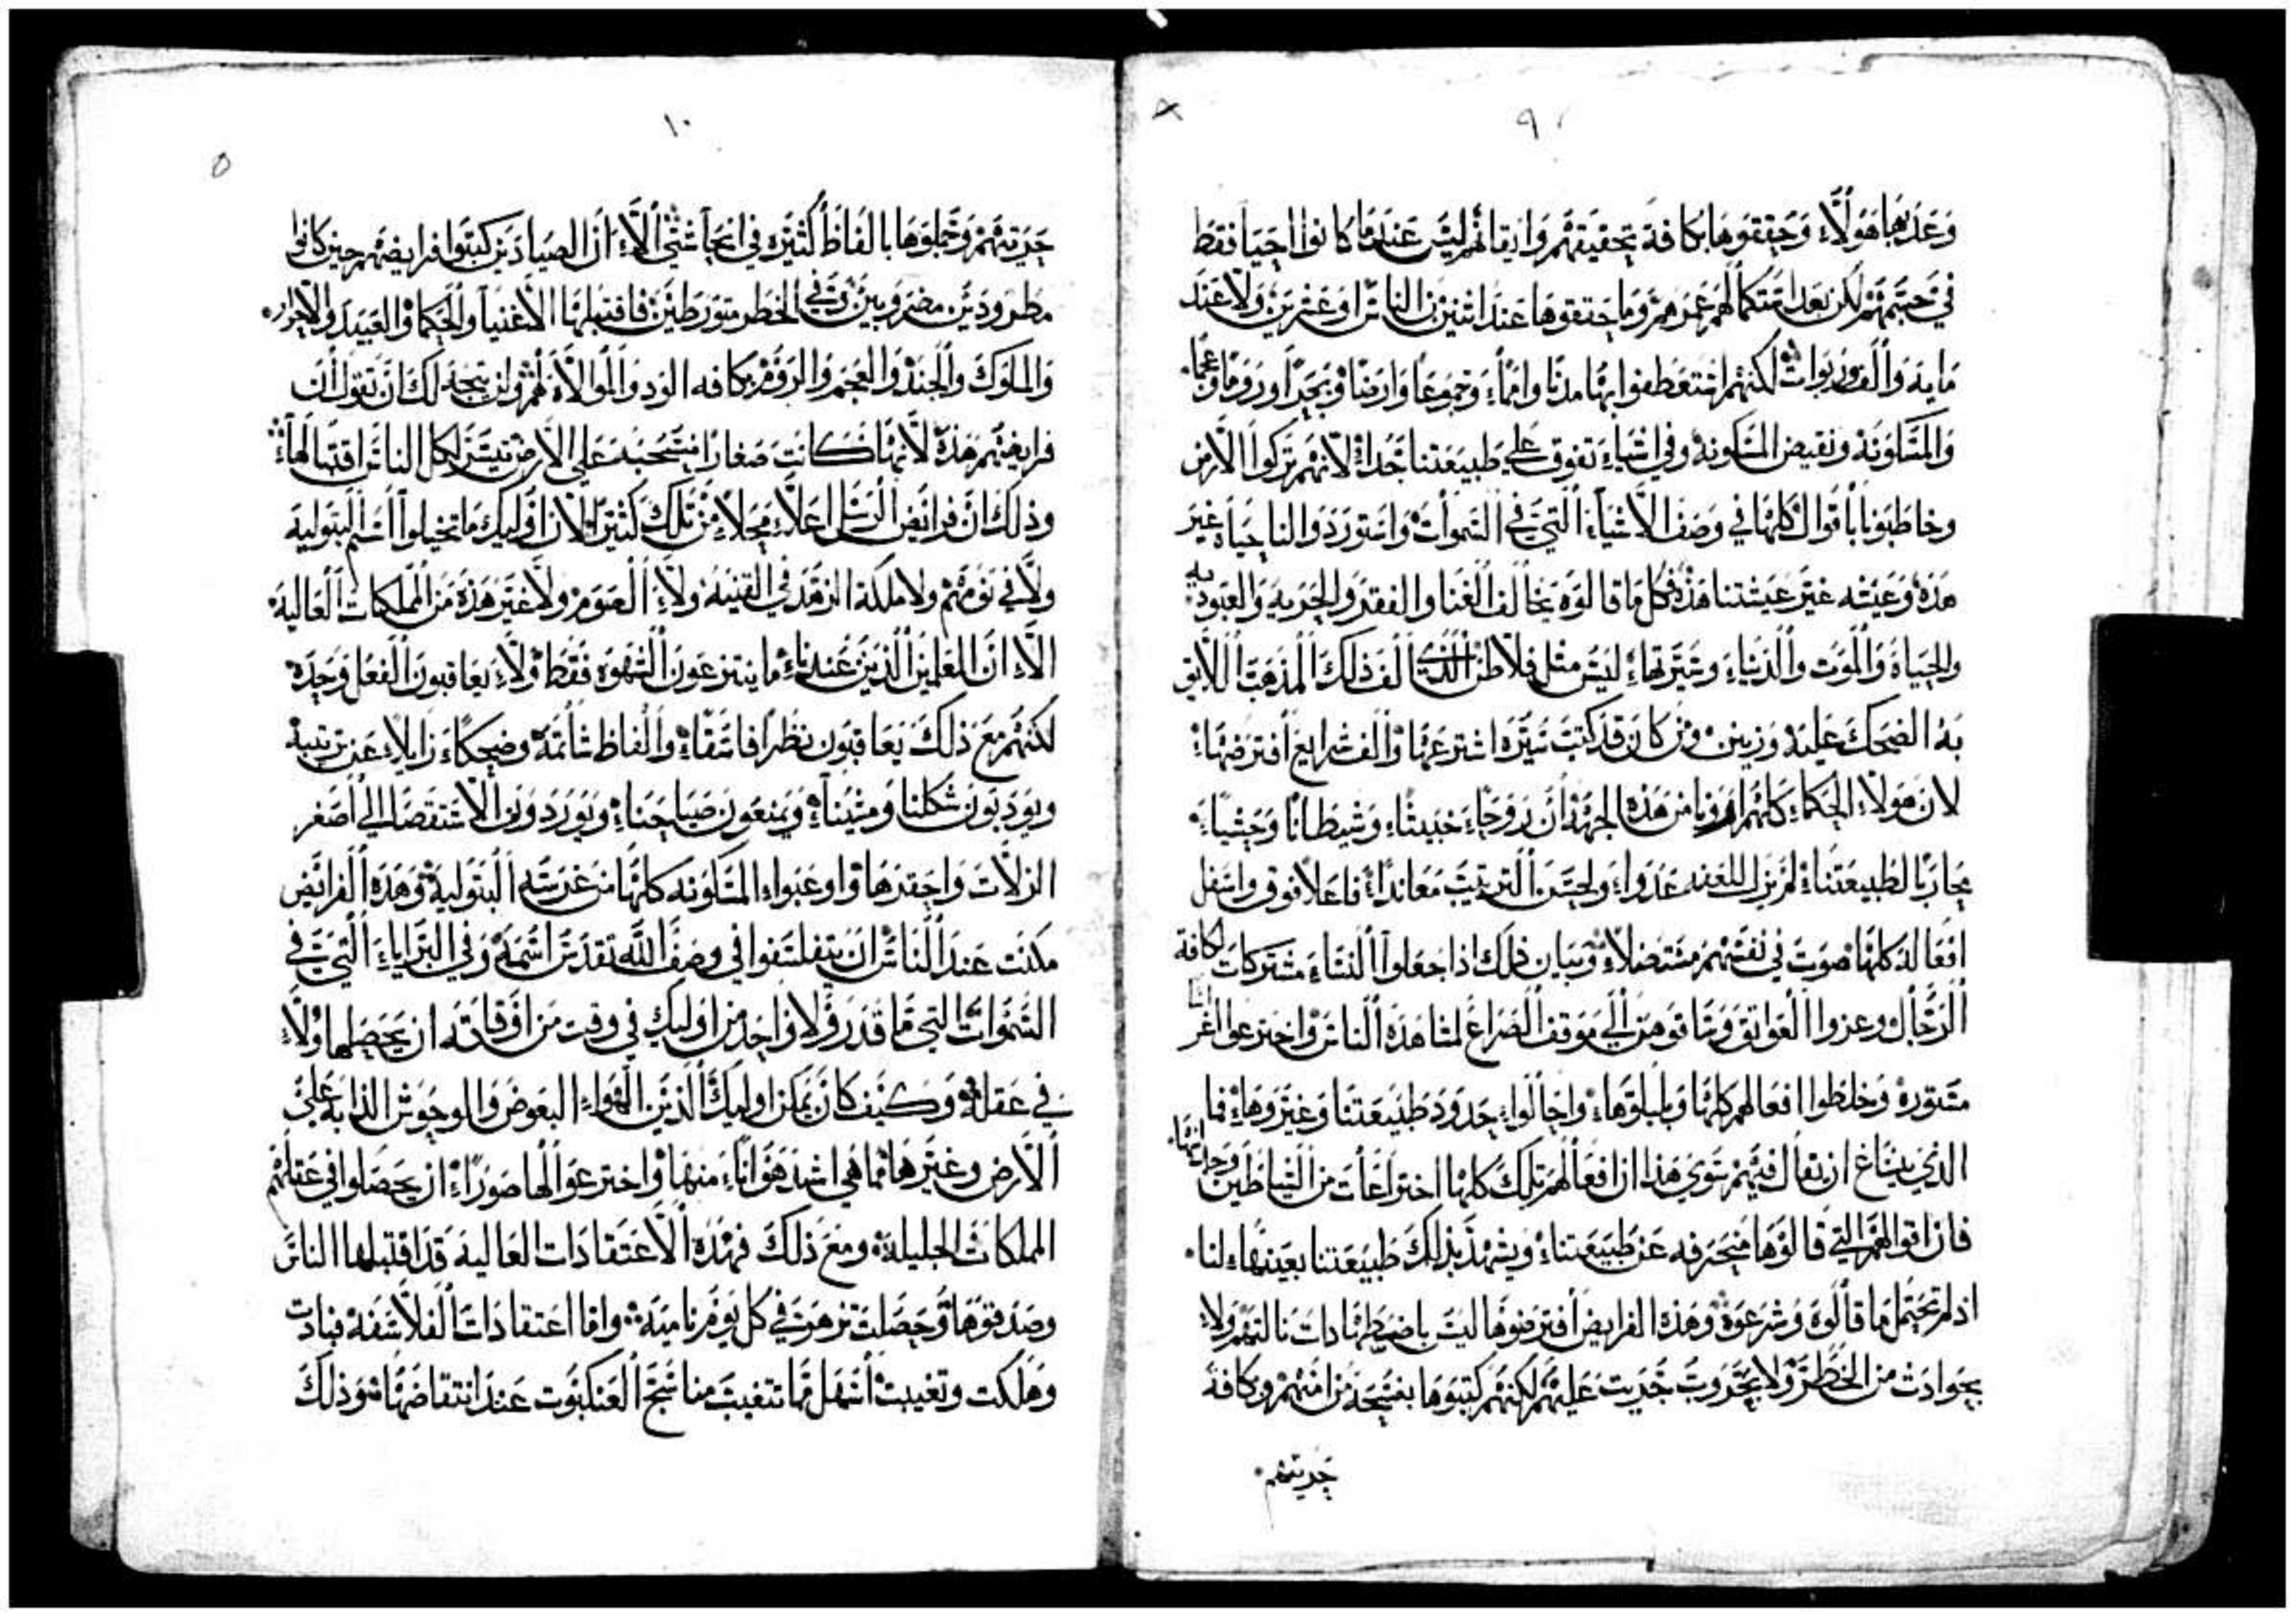 ٩
وعد بها هولاء وحققوها بكافة تحقيقهم وايقانهم ليس عندما كانوا احيا فقط
في صحبتهم لكن بعد استكمالهم عمرهم وما حققوها عند اثنين من الناس او عشرين ولا عند
مايه والف وربوات لكنهم استعطفوا بها مدنا وامما وجموعا وارضا وبحرا وروما وعجما
والمسكونة ونقيض المسكونه وفي اشياء تفوق علي طبيعتنا جدا لانهم تركوا الارض
وخاطبونا باقوال كلها في وصف الاشياء التي في السموات واستوردوا لنا حياة غير
هذه وعيشه غير عيشتنا هذه فكل ما قالوه يخالف الغنا والفقر والحريه والعبوديه
والحياة والموت والدنياء وسيرتهاء ليس مثل فلاطن الذي الف ذلك المذهب اللايق
به الضحك عليه وزينن ومن كان قد كتب سيره اشترعها والف شرايع افترضها
لان هولاء الحكماء كلهم اورونا من هذه الجهة ان روحاء خبيثاء وشيطانا وحشياء
يحارب الطبيعتناء لم يزل للعفه عدواء ولحسن الترتيب معانداء فاعلا فوق واسفل
افعاله كلها صوت في نفسهم مستضلا وبيان ذلك اذا جعلوا النساء مشتركات لكافة
الرجال وعروا العواتق وساقوهن الي موقف الصراع لمشاهدة الناس واخترعوا اعراسا
مستوره وخلطوا افعالهم كلها وبلبلوهاء واحالواء حدود طبيعتنا وغيروهاء فما
الذي ينساغ ان يقال فيهم سوي هذا ان افعالهم تلك كلها اختراعات من الشياطين وجدانها
فان اقوالهم التي قالوها منحرفه عن طبيعتناء ويشهد بذلك طبيعتنا بعينهاء لنا
اذ لم تحتمل ما قالوه وشرعوه وهذه الفرايض افترضوها ليس باضطهادات نالتهم ولاء
بحوادث من الخطر ولا بحروب جريت عليهم لكنهم كتبوها بفسحة من امنهم وكافة
حريتهم
١٠
حريتهم وجملوها بالفاظ كثيره في انحا شتي الاء ان الصيادين كتبوا فرايضهم حين كانوا
مطرودين مضروبين وفي الخطر متورطين فاقتبلها الاغنيا والحكما والعبيد والاحرار
والملوك والجند والعجم والروم بكافه الود والموالاة لهم ولن يتجه لك ان تقول ان
فرايضهم هذه لانها كانت صغارا منسحبه علي الارض تيسر لكل الناس اقتبالهاء
وذلك ان فرايض الرسل اعلاء محلاء من تلك كثيرا لان اوليك ما تخيلوا اسم البتولية
ولا في نومهم ولا ملكة الزهد في القنيه ولاء الصوم ولا غير هذه من الملكات العالية
الاء ان المعلمين الذين عندناء ما ينتزعون الشهوه فقط ولاء يعاقبون الفعل وحده
لكنهم مع ذلك يعاقبون نظرا فاسقاء والفاظ شاتمة وضحكاء زايلاء عن ترتيبه
ويودبون شكلنا ومشيناء ويمنعون صياحناء ويوردون الاستقصا الي اصغر
الزلات واحقرها واوعبواء المسكونه كلها من غرسة البتولية وهذه الفرايض
مكنت عند الناس ان يتفلسفوا في وصف الله تقدس اسمه وفي البراياء التي في
السموات التي ما قدر ولا واحد من اوليك في وقت من اوقاته ان يحصلها ولاء
في عقله وكيف كان يمكن اوليك الذين الهواء البعوض والوحوش الدابة علي
الارض وغيرها مما هي اشد هواناء منها واخترعوا لها صوراء ان يحصلوا في عقلهم
الملكات الجليلة ومع ذلك فهذه الاعتقادات العالية قد اقتبلها الناس
وصدقوها وحصلت تزهو في كل يوم ناميه واما اعتقادات الفلاسفه فبادت
وهلكت وتغيبت اسهل مما تتغيب مناسج العنكبوت عند انتقاضها وذلك